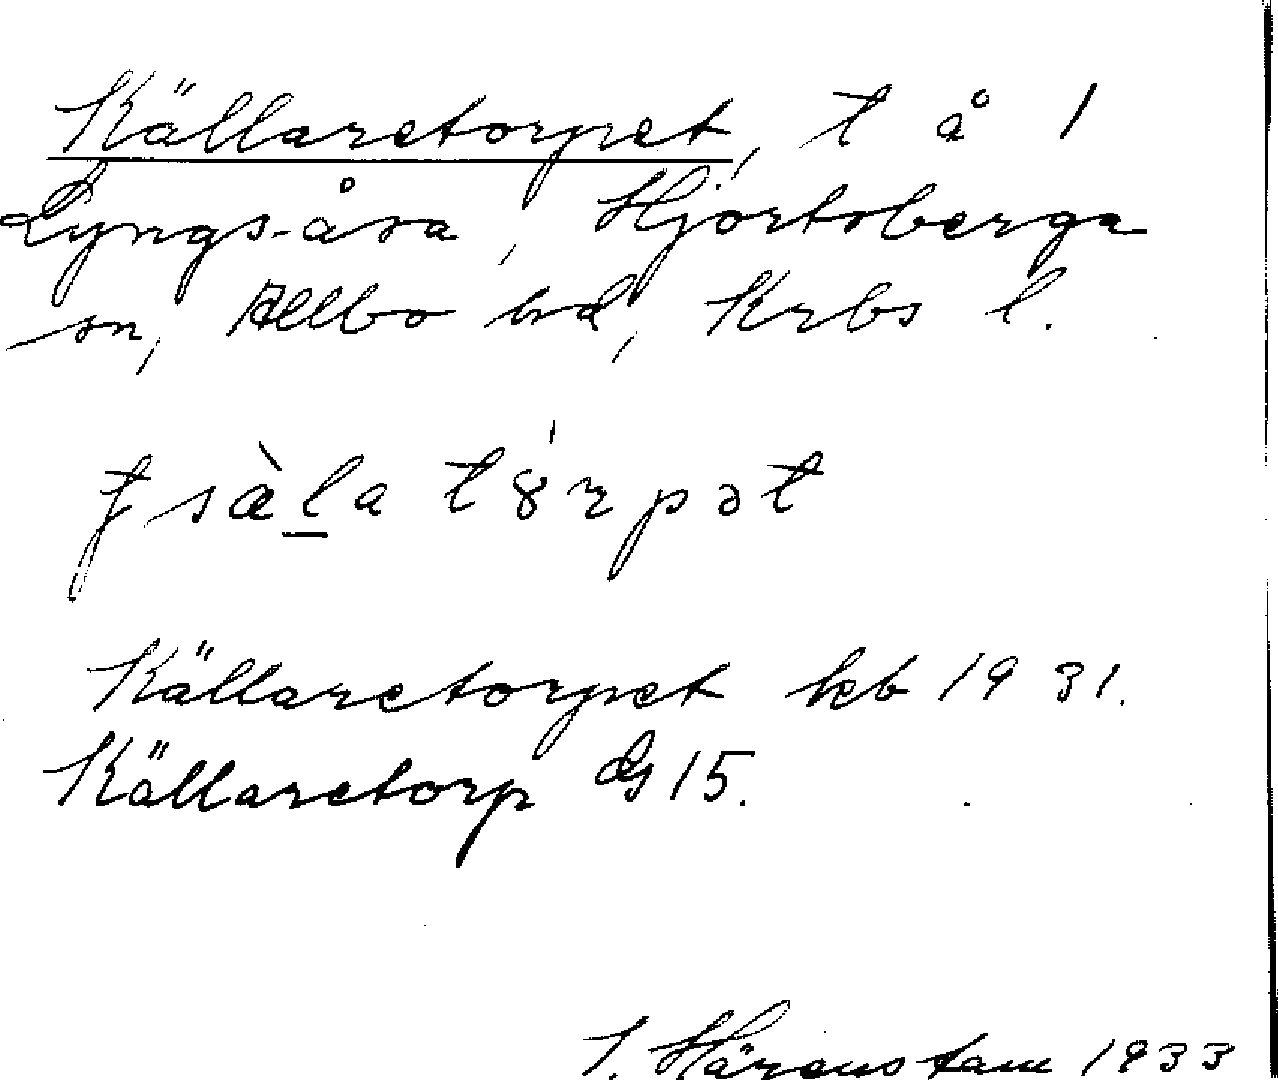 Källaretorpet, t å 1
Lyngs-åsa, Hjortsberga
sn, Allbo hd, Krbs l.
ʈsæ̀l̲a tȣ́rpət
Källaretorpet kb 1931.
Källaretorp GS 15.
I. Härenstam 1933